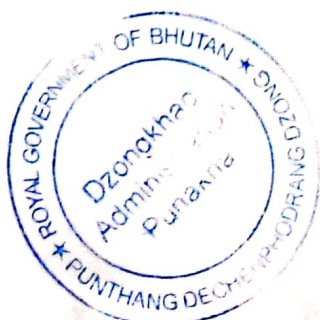 ★ ROYAL GOVERNMENT OF BHUTAN ★
PUNTHANG DECHENPHODRANG DZONG
Dzongkhag
Administration
Punakha